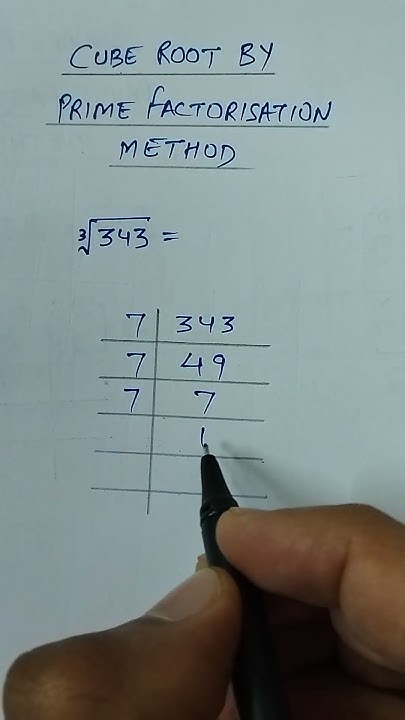 CUBE ROOT BY
PRIME FACTORISATION
METHOD
∛343 =
7 | 343
7 | 49
7 | 7
| 1